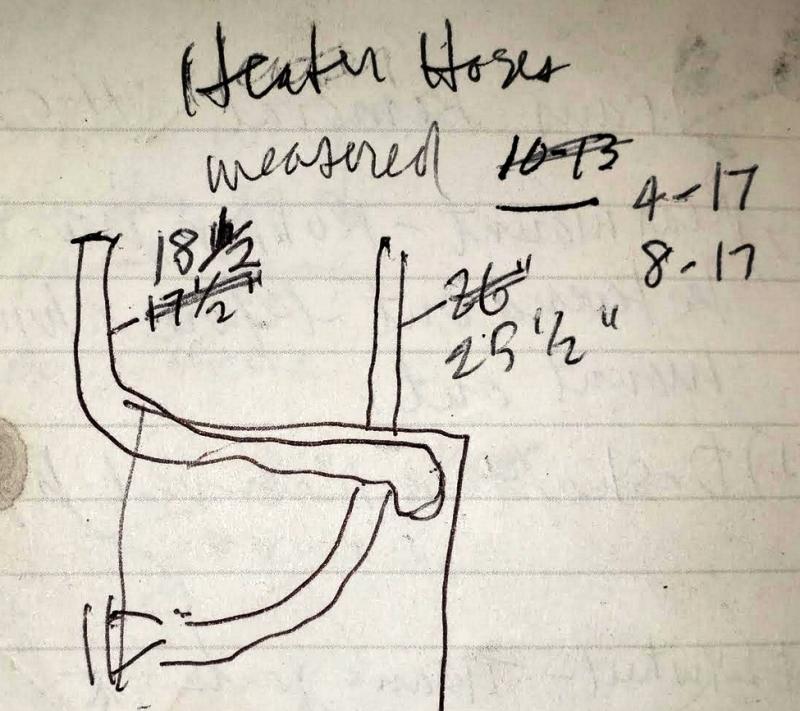 Heater Hoses
measured 10-13
4-17
8-17
18 1/2
17 1/2"
26"
25 1/2"